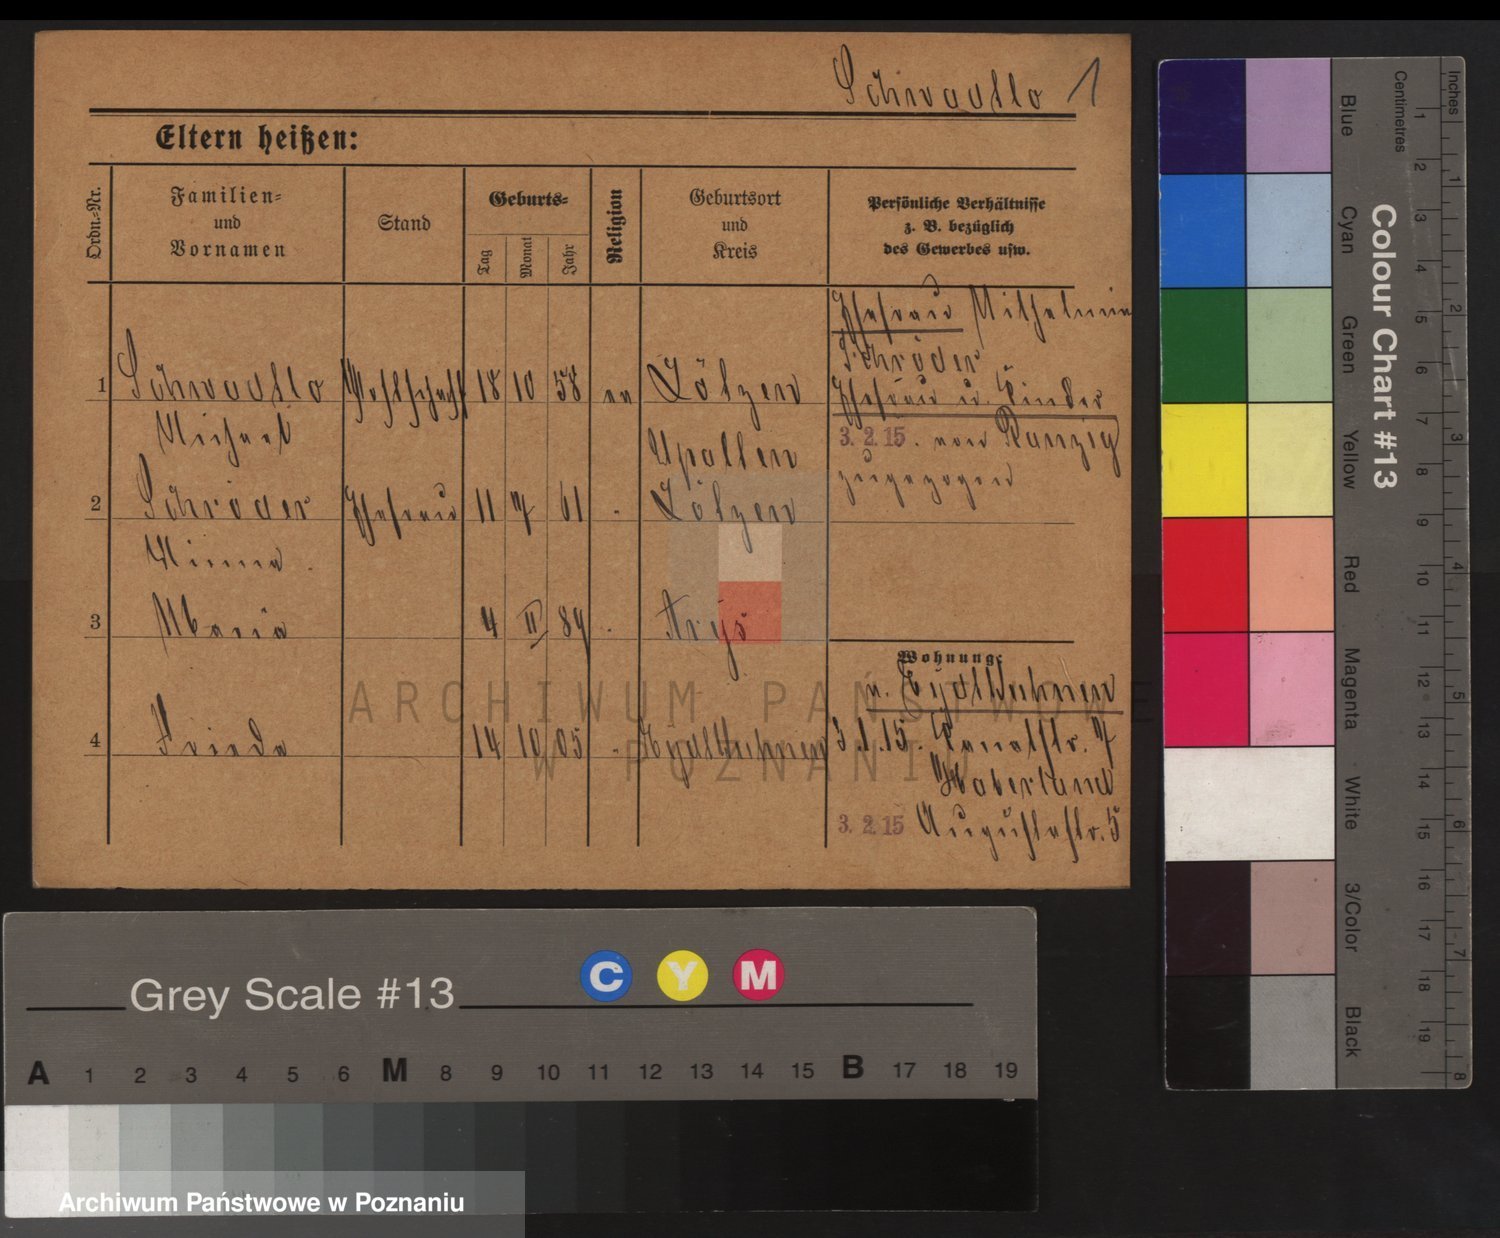 Schwadllo 1
Eltern heißen:
Ordn.-Nr.
Familien-
und
Vornamen
Stand
Geburts-
Tag
Monat
Jahr
Religion
Geburtsort
und
Kreis
Persönliche Verhältnisse
z. B. bezüglich
des Gewerbes usw.
Ehefrau Wilhelmine
Schröder
1 18 10 58 ev Lötzen
Ehefrau u. Kinder
Michael
3. 2. 15. von Danzig
Upalten
zugezogen
2 Schröder Ehefrau 11 7 61 " Lötzen
Minna
3 Maria 4 II 89 " Arys
Wohnung:
v. Eydtkuhnen
4 Frieda 14 10 05 " Eydtkuhnen
3. 1. 15. Kanalstr. 7
Haberland
3. 2. 15 Augustastr. 5
ARCHIWUM PAŃSTWOWE
W POZNANIU
Grey Scale #13
C Y M
A 1 2 3 4 5 6 M 8 9 10 11 12 13 14 15 B 17 18 19
Archiwum Państwowe w Poznaniu
Colour Chart #13
Blue
Cyan
Green
Yellow
Red
Magenta
White
3/Color
Black
Centimetres
1 2 3 4 5 6 7 8 9 10 11 12 13 14 15 16 17 18 19
Inches
1 2 3 4 5 6 7 8